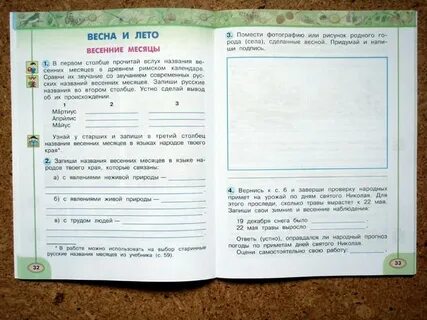 ВЕСНА И ЛЕТО
ВЕСЕННИЕ МЕСЯЦЫ
1. В первом столбце прочитай вслух названия
весенних месяцев в древнем римском календаре.
Сравни их звучание со звучанием современных рус-
ских названий весенних месяцев. Запиши русские
названия во втором столбце. Устно сделай вывод
об их происхождении.
1 2 3
Ма́ртиус
Апри́лис
Ма́йус
Узнай у старших и запиши в третий столбец
названия весенних месяцев в языках народов твоего
края*.
2. Запиши названия весенних месяцев в языке наро-
дов твоего края, которые связаны:
а) с явлениями неживой природы —
б) с явлениями живой природы —
в) с трудом людей —
* В работе можно использовать на выбор старинные
русские названия месяцев из учебника (с. 59).
32
3. Помести фотографию или рисунок родного го-
рода (села), сделанные весной. Придумай и напи-
ши подпись.
4. Вернись к с. 6 и заверши проверку народных
примет на урожай по дням святого Николая. Для
этого проследи, сколько травы вырастет к 22 мая.
Запиши свои зимние и весенние наблюдения.
19 декабря снега было
22 мая травы выросло
Ответь (устно), оправдался ли народный прогноз
погоды по приметам дней святого Николая.
Оцени самостоятельно свою работу:
33